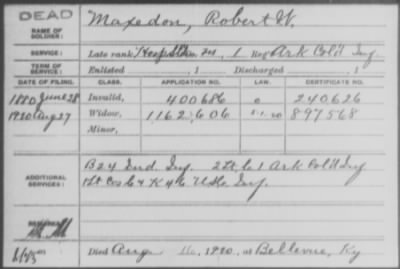 DEAD
NAME OF SOLDIER: Maxedon, Robert W.
SERVICE: Late rank, Hosp. Stew. , 1 Reg't Ark Col'd Inf.
TERM OF SERVICE: Enlisted , 1 Discharged , 1
DATE OF FILING. CLASS. APPLICATION NO. LAW. CERTIFICATE NO.
1880 June 28 Invalid, 400686 240626
1920 Aug 27 Widow, 1162606 5.1.20 897568
Minor,
ADDITIONAL SERVICES: B 24 Ind. Inf. 2 Lt. C 1 Ark Col'd Inf
1 Lt Cos G & K 46 U.S.C. Inf.
REMARKS:
Died Aug 1920, at Bellevue, Ky